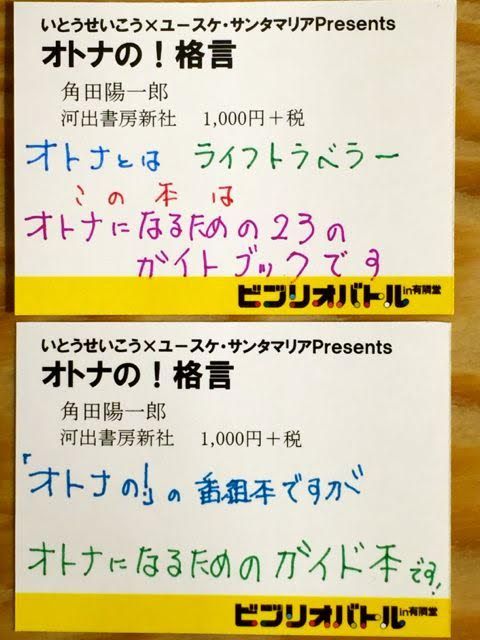 いとうせいこう×ユースケ・サンタマリアPresents
オトナの！格言
角田陽一郎
河出書房新社 1,000円+税
オトナとは ライフトラベラー
この本は
オトナになるための23の
ガイトブックです
ビブリオバトルin有隣堂
いとうせいこう×ユースケ・サンタマリアPresents
オトナの！格言
角田陽一郎
河出書房新社 1,000円+税
「オトナの!」の番組本ですが
オトナになるためのガイド本です!
ビブリオバトルin有隣堂